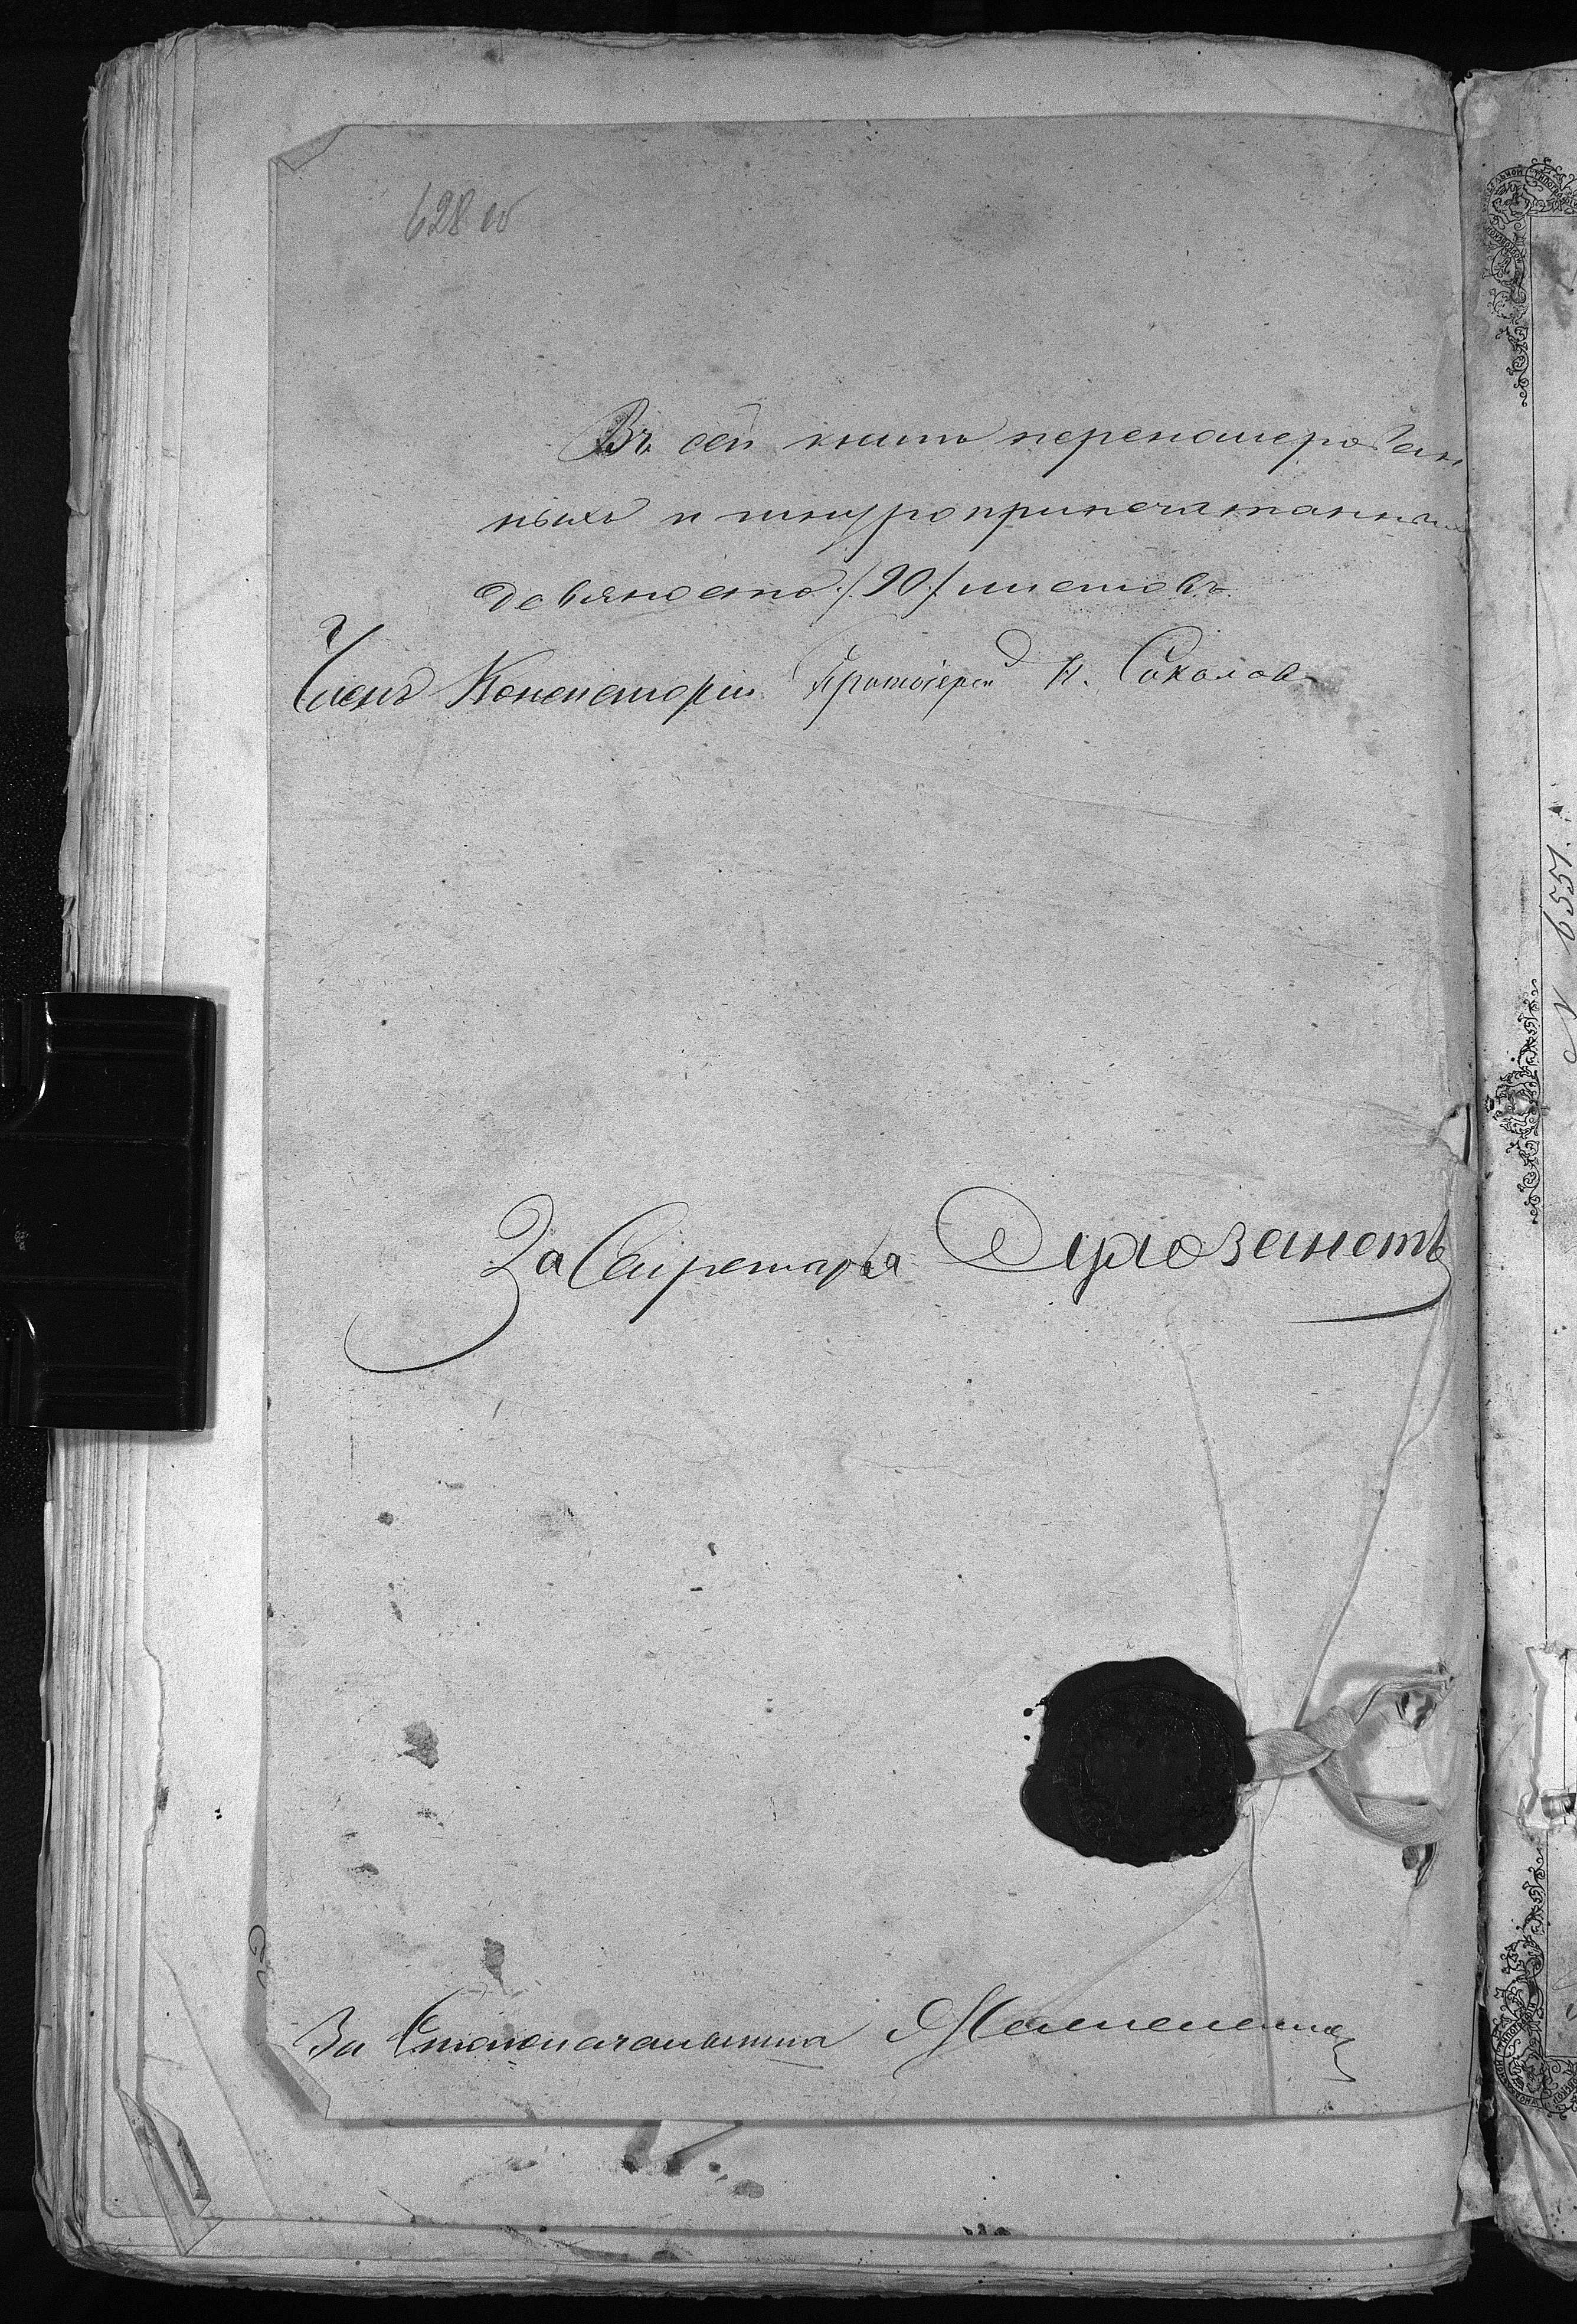 628 об
Въ сей книгѣ перенумерован
ныхъ и шнуропропечатанныхъ
девяносто /90/ листовъ.
Членъ Консисторіи Протоіерей Н. Соколовъ
За Секретаря
За Столоначальника
N 6551.